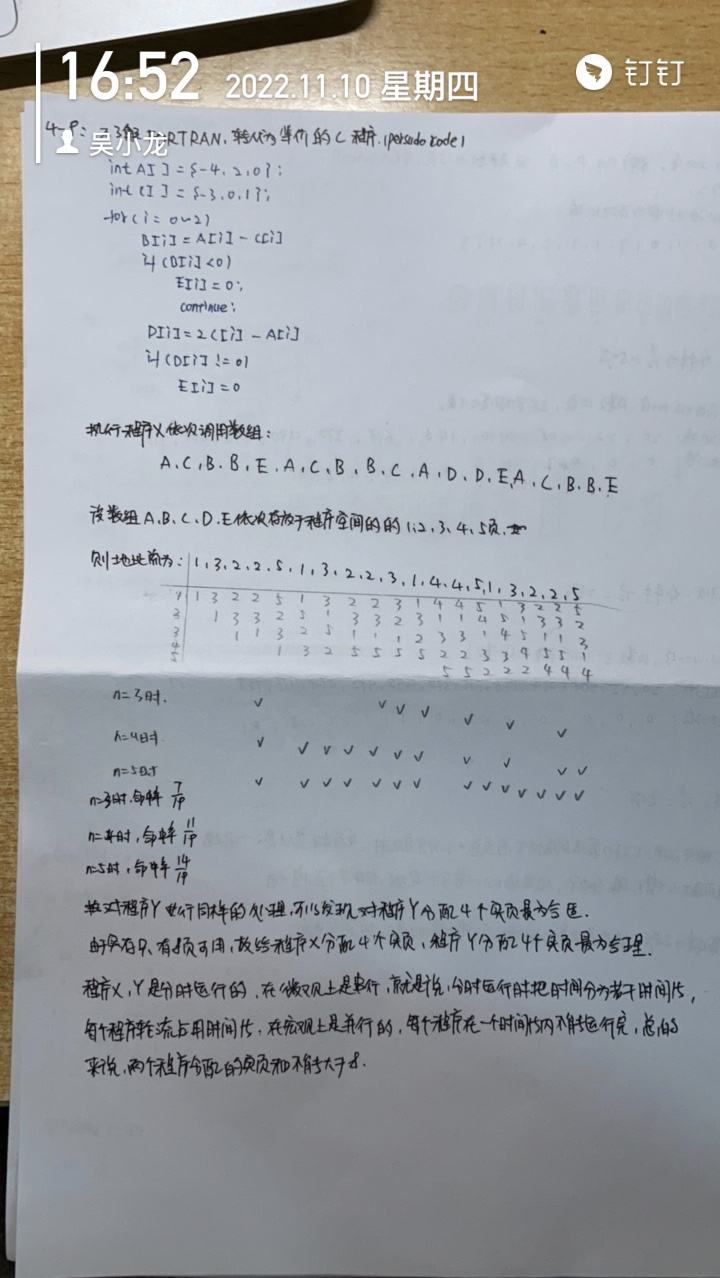 16:52 2022.11.10 星期四
钉钉
吴小龙
4-9: FORTRAN, 转化为等价的C程序. (persudo code)
int A[] = {-4, 2, 0};
int C[] = {-3, 0, 1};
for(i = 0~2)
B[i] = A[i] - C[i]
if (B[i] < 0)
E[i] = 0;
continue;
D[i] = 2C[i] - A[i]
if (D[i] != 0)
E[i] = 0
执行程序X依次调用数组:
A, C, B, B, E, A, C, B, B, C, A, D, D, E, A, C, B, B, E
设数组A、B、C、D、E依次存放于程序空间的的1、2、3、4、5页,
则地址流为: 1, 3, 2, 2, 5, 1, 3, 2, 2, 3, 1, 4, 4, 5, 1, 3, 2, 2, 5
1 1 3 2 2 5 1 3 2 2 3 1 4 4 5 1 3 2 2 5
2 1 3 3 2 5 1 3 3 2 3 1 1 4 5 1 3 3 2
3 1 1 3 2 5 1 1 1 2 3 3 1 4 5 1 1 3
4 1 3 2 5 5 5 5 2 2 3 3 4 5 5 1
5 5 5 2 2 2 4 4 4
n=3时. ✓ ✓ ✓ ✓ ✓ ✓ ✓
n=4时. ✓ ✓ ✓ ✓ ✓ ✓ ✓ ✓ ✓ ✓ ✓
n=5时 ✓ ✓ ✓ ✓ ✓ ✓ ✓ ✓ ✓ ✓ ✓ ✓ ✓ ✓
n=3时, 命中率 7/19
n=4时, 命中率 11/19
n=5时, 命中率 14/19
对程序Y也行同样的处理, 不难发现对程序Y分配4个实页最为合适.
由于实存只有8页可用, 故给程序X分配4个实页, 程序Y分配4个实页最为合理.
程序X, Y是分时运行的, 在微观上是串行, 就是说, 分时运行时把时间分为若干时间片,
每个程序轮流占用时间片. 在宏观上是并行的, 每个程序在一个时间片内不能运行完, 总的
来说, 两个程序分配的实页和不能大于8.